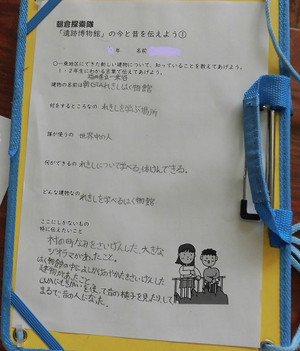 朝倉探索隊
「遺跡博物館」の今と昔を伝えよう①
年 名
○一乗谷にできた新しい建物について、知っていることを教えてあげよう。
1・2年生にわかる言葉で伝えてあげよう。
福井県立一乗谷
建物の名前は 朝倉しれきしはく物館
何をするところなの れきしを学ぶ場所
誰が使うの 世界中の人
何ができるの れきしについて学べる体けんできる。
どんな建物なの れきしを学べるはく物館
ここにしかないもの
特に伝えたいこと
村の町なみをさいげんした大きな
ジオラマがあったこと。
はく物館の中によしかげやかたをさいげんした
建物があったこと
を使って昔の様子を見たりして
まるで昔の人になった。